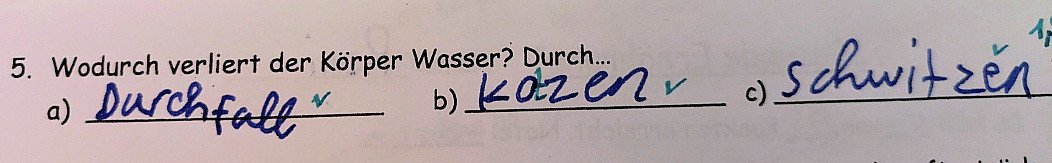 5. Wodurch verliert der Körper Wasser? Durch...
a) Durchfall ✓ b) kotzen ✓ c) schwitzen ✓